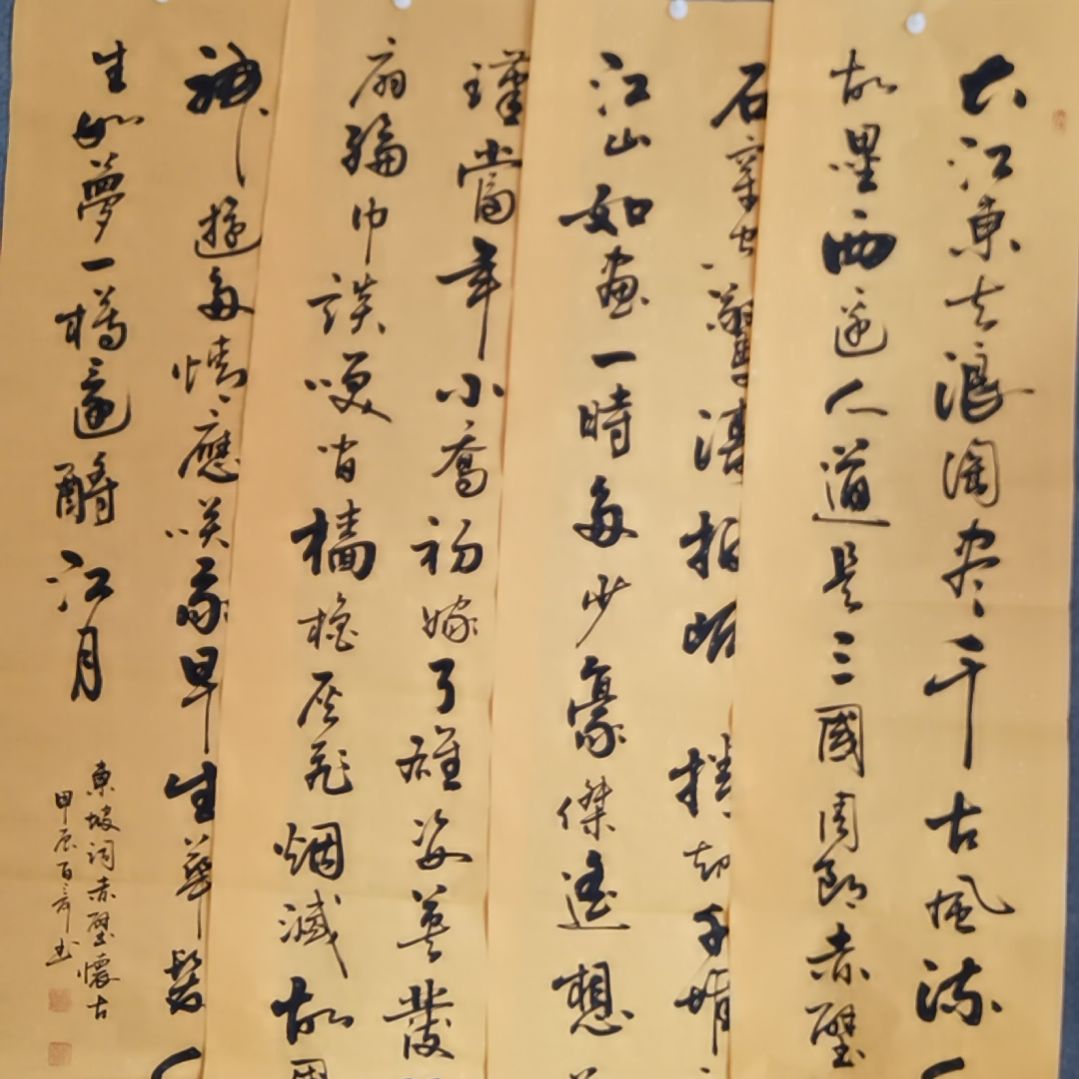 大江東去浪淘尽千古風流人
故壘西邊人道是三國周郎赤壁
石穿空驚濤拍岸捲起千堆
江山如畫一時多少豪傑遙想
瑾當年小喬初嫁了雄姿英發
扇綸巾談笑間檣櫓灰飛烟滅故國
神遊多情應笑我早生華髮人
生如夢一樽還酹江月
東坡詞赤壁懷古
甲辰百书